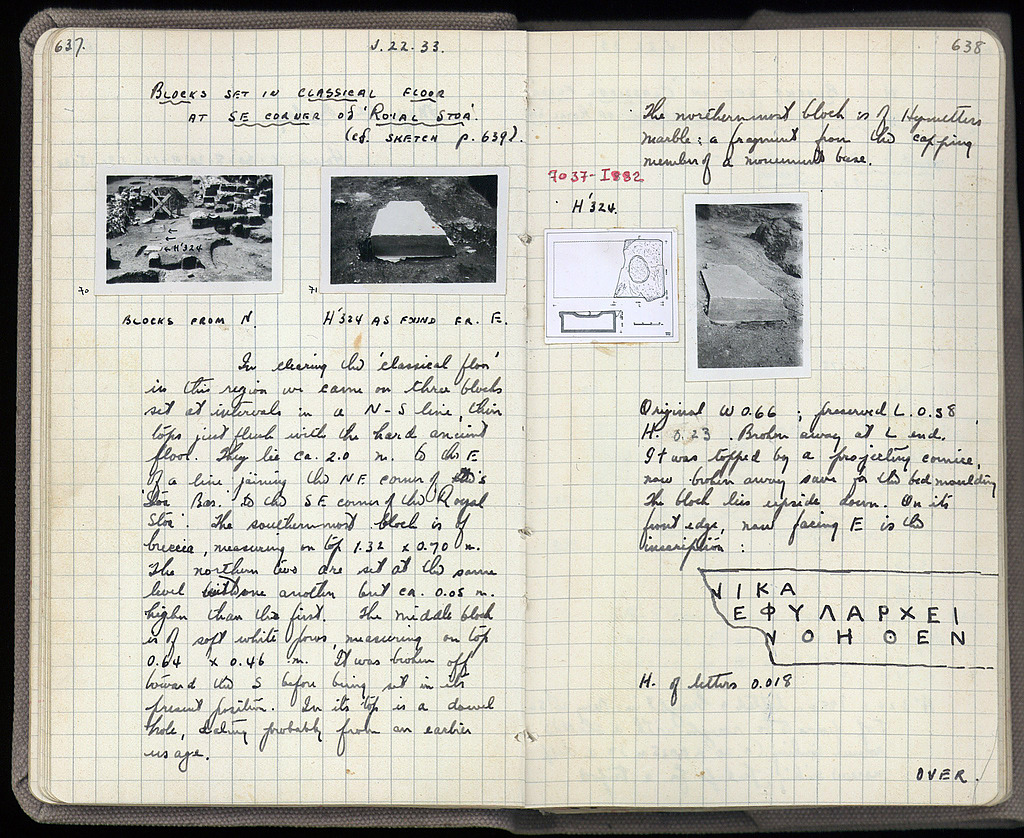 637.
V.22.33.
BLOCKS SET IN CLASSICAL FLOOR
AT SE CORNER OF 'ROYAL STOA'.
(cf. SKETCH p. 639).
H'324
70
71
BLOCKS FROM N.
H'324 AS FOUND FR. E.
In clearing the 'classical floor'
in this region we came on three blocks
set at intervals in a N-S line, their
tops just flush with the hard ancient
floor. They lie ca. 2.0 m. to the E
of a line joining the NE corner of the
'Stoa Bas.' to the SE corner of the 'Royal
Stoa'. The southernmost block is of
breccia, measuring on top 1.32 x 0.70 m.
The northern two are set at the same
level with one another but ca. 0.05 m.
higher than the first. The middle block
is of soft white poros measuring on top
0.64 x 0.46 m. It was broken off
toward the S before being set in its
present position. In its top is a dowel
hole, dating probably from an earlier
usage.
638
The northernmost block is of Hymettus
marble: a fragment from the capping
member of a monument base.
7037-I882
H'324.
Original W 0.66; preserved L. 0.38
H. 0.23. Broken away at L end.
It was topped by a projecting cornice,
now broken away save for the bed moulding
The block lies upside down. On its
front edge, now facing E is the
inscription:
ΝΙΚΑ
ΕΦΥΛΑΡΧΕΙ
ΝΟΗΘΕΝ
H. of letters 0.018
OVER.